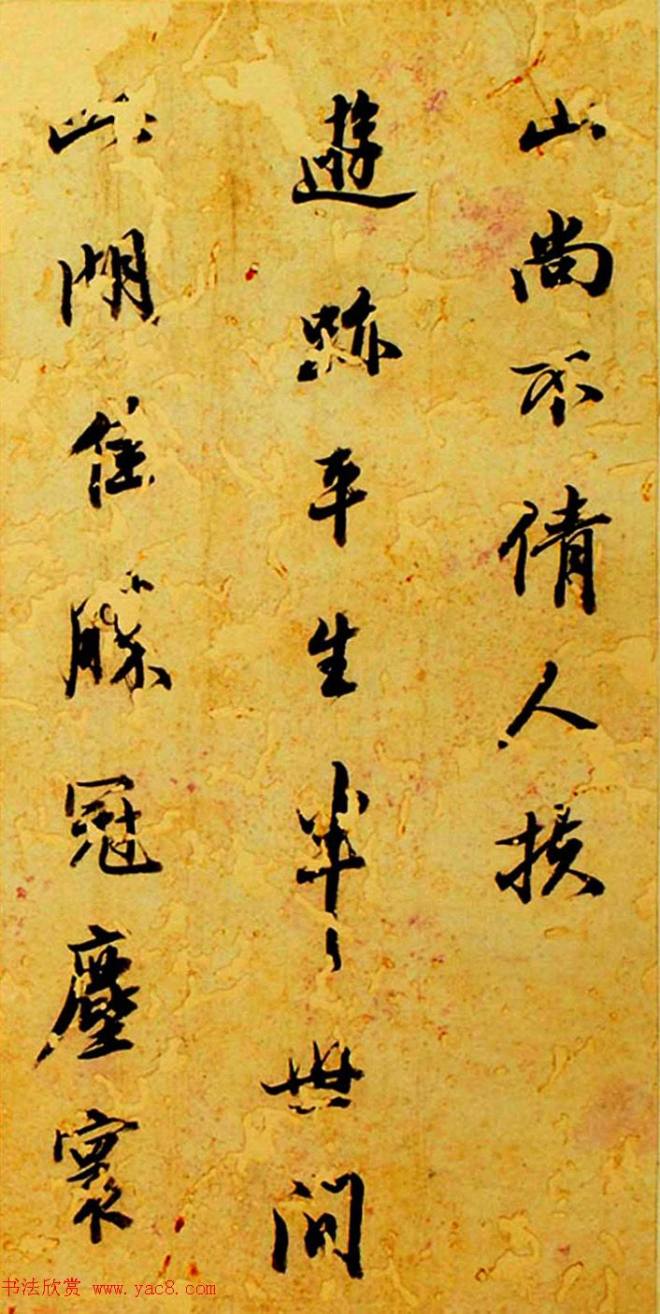 山尚不倩人扶
遊跡平生半世间
此湖佳勝冠塵寰
书法欣赏 www.yac8.com